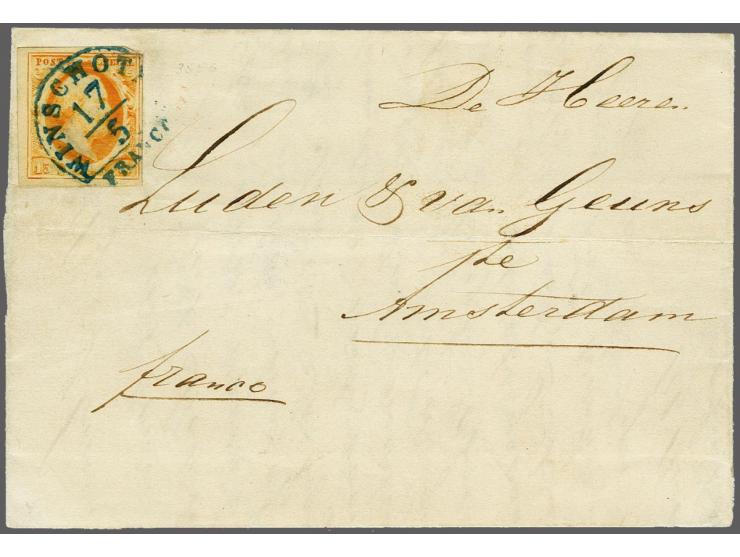 WINSCHOT
17/5
FRANCO
De Heeren
Luden & van Geuns
te
Amsterdam
franco